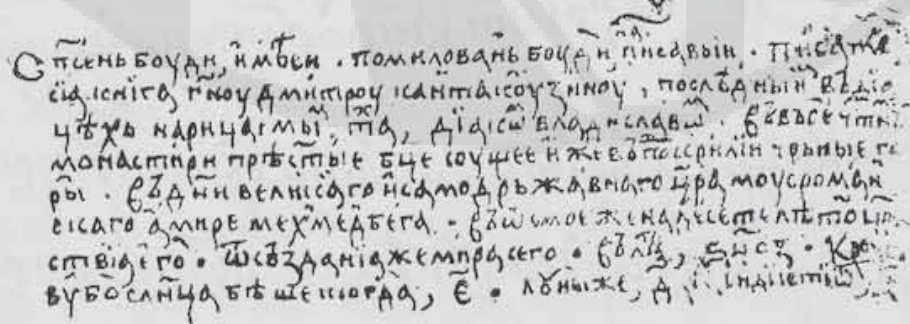 Сп҃сень боуди, имѣеи . помиловань боуди писавыи . Писа же
сіа книга г҃ноу дмитроу кантакоузиноу , послѣдныи въ діа
цѣхь нарицаемыи, та, діакѡ владиславѡ . въ въсечтнѣ
монастири прѣс҃тыіе б҃це соущее иже въ поскрилїи чрьныіе го
ры . въ д҃ни великаго и самодрьжавнаго ц҃ра моусроман
скаго амире мехмедьбега . въ ѡсмое же на десете лѣто ц҃р
ствіа его . ѿ създаніа же мира сего . въ лѣт,
оубо сл҃нца бѣше тогда, е҃ . лоуны же, д҃ і, індиктіѡ